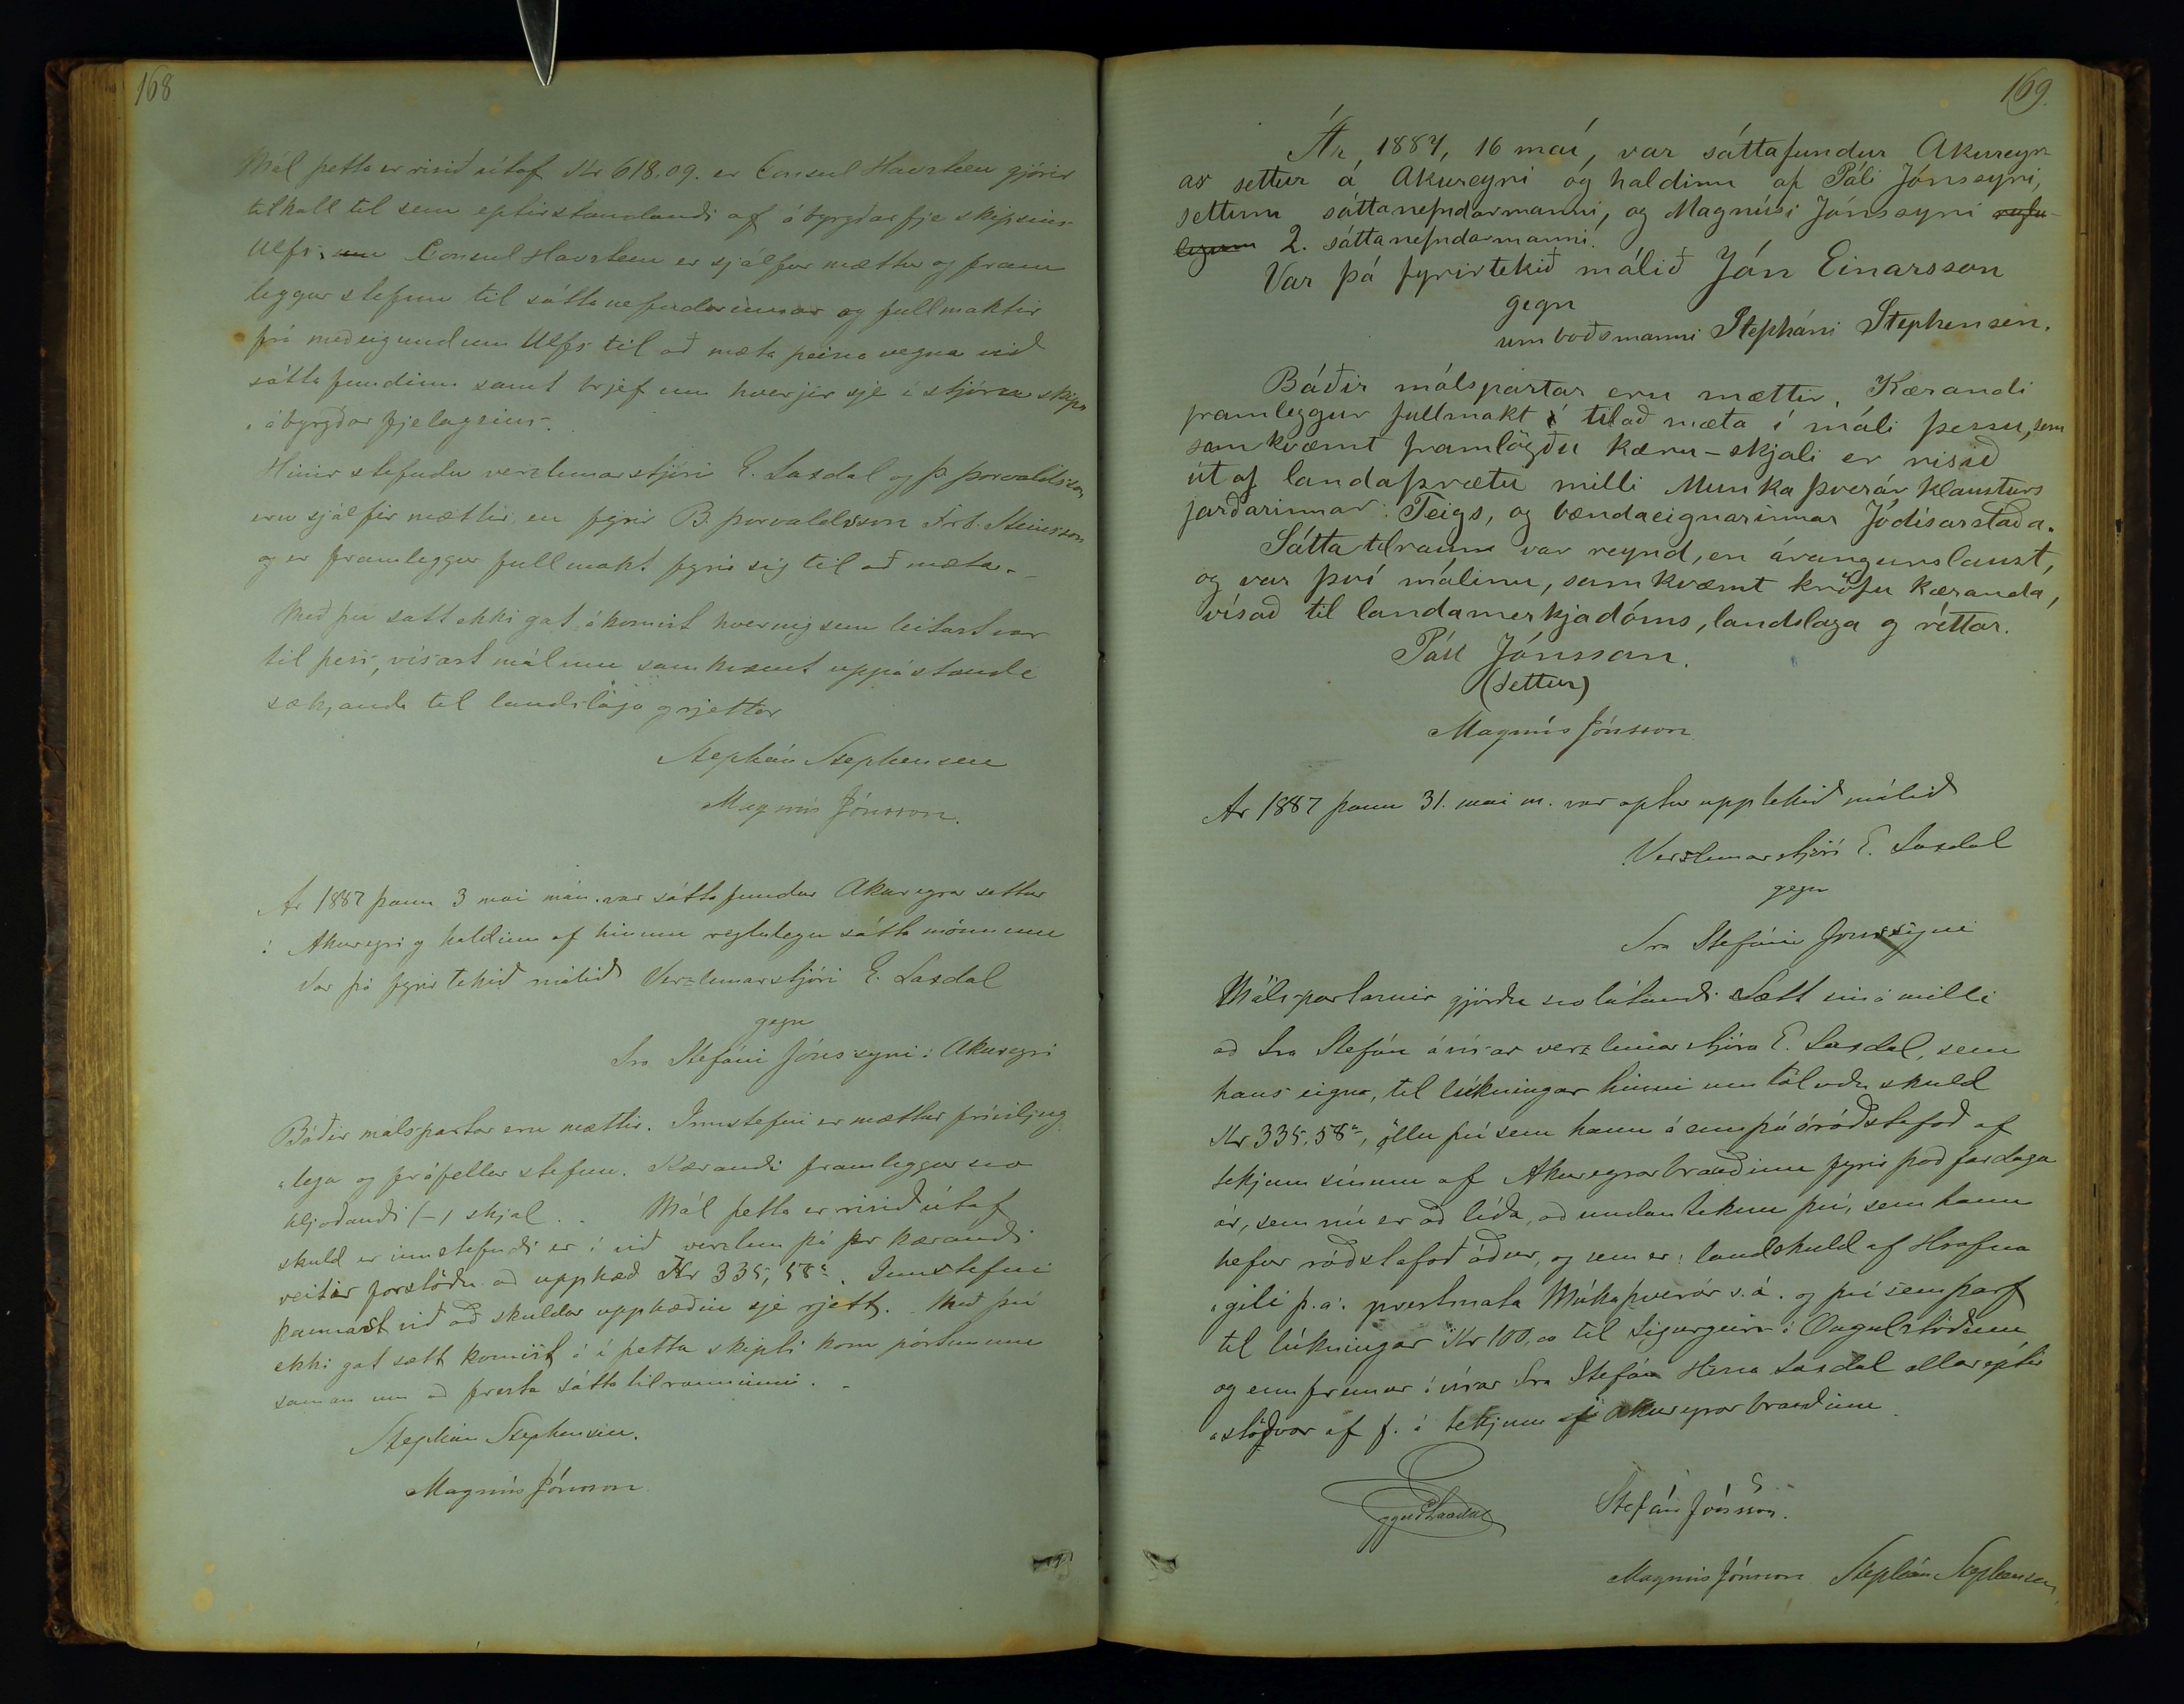 168
Mál þetta er risið útaf Kr 618.09. er Consul Havsteen gjörir
tilkall til sem eptirstandandi af ábyrgðarfje skipsins
Ulfs, Consul Havsteen er sjálfur mættur og fram
leggur stefnu til sáttanefndarinnar og fullmaktir
frá meðeigundum Ulfs til að mæta þeirra vegna við
sáttafundinn samt brjef um hverjir sje í stjórn skips
„ábyrgðarfjelagsins.
Hinir stefndu verzlunarstjóri E. Laxdal og Þ. Þorvaldsson
eru sjálfir mættir, en fyrir B. Þorvaldsson Frb. Steinsson
og er framleggur fullmakt fyrir sig til að mæta.
Með því sátt ekki gat ákomist hvernig sem leitast var
til þess, vísast málinu samkvæmt uppástandi
sækjanda til landslaga og rjettar
Stephán Stephensen
Magnús Jónsson.
Ár 1887 þann 3 mai mán. var sáttafundur Akureyrar settur
í Akureyri og haldinn af hinum reglulegu sáttamönnum
Var þá fyrirtekið málið Verzlunarstjóri E. Laxdal
gegn
Sra Stefáni Jónssyni í Akureyri
Báðir málspartar eru mættir. Innstefni er mættur fríviljug
„lega og fráfellur stefnu. Kærandi framleggur svo
hljóðandi /-/ skjal . . Mál þetta er risið útaf
skuld er innstefndi er í við verzlun þá er kærandi
veitir forstöðu að upphæð Kr 335, 58 a. Innstefni
kannast við að skuldar upphæðin sje rjett. Með því
ekki gat sætt komist á í þetta skipti kom pörtunum
saman um að fresta sáttatilrauninni.
Stephán Stephensen.
Magnús Jónsson
169.
Ár, 1887, 16 maí, var sáttafundur Akureyr-
ar settur á Akureyri og haldinn af Páli Jónssyni,
settum sáttanefndarmanni, og Magnúsi Jónssyni reglu-
legum 2. sáttanefndarmanni.
Var þá fyrirtekið málið Jón Einarsson
gegn
umboðsmanni Stepháni Stephensen.
Báðir málspartar eru mættir. Kærandi
framleggur fullmakt til að mæta í máli þessu, sem
samkvæmt framlögðu kæru-skjali er risið
út af landaþrætu milli Munkaþverár klausturs
jarðarinnar: Teigs, og bændaeignarinnar Jódísarstaða.
Sáttatilraun var reynd, en árangurslaust,
og var því málinu, samkvæmt kröfu kæranda,
vísað til landamerkjadóms, landslaga og réttar.
Páll Jónsson.
(settur)
Magnús Jónsson
Ár 1887 þann 31. mai m. var aptur upptekið málið
Verzlunarstjóri E. Laxdal
gegn
Sra Stefáni Jónssyni
Málspartarnir gjörðu svo látandi Sætt sín á milli
að Sra Stefán ávísar verzlunarstjóra E. Laxdal, sem
hans eign, til lúkningar hinni umtöluðu skuld
Kr 335,58 a, öllu því sem hann á ennþá óráðstafað af
tekjum sínum af Akureyrarbrauðinu fyrir það fardaga
ár, sem nú er að líða, að undanteknu því, sem hann
hefur ráðstafað áður, og sem er: landskuld af Hrafna
„gili þ.á. prestmata Múkaþverár s.á. og því sem þarf
til lúkningar Kr 100,00 til Sigurgeirs í Öngulstöðum
og ennfremur ávísar Sra Stefán Herra Laxdal allar eptir
„stöðvar af f. á tekjum af Akureyrarbrauðinu
Eggert Laxdal
Stefán Jónsson.
Magnús Jónsson Stephán Stephensen